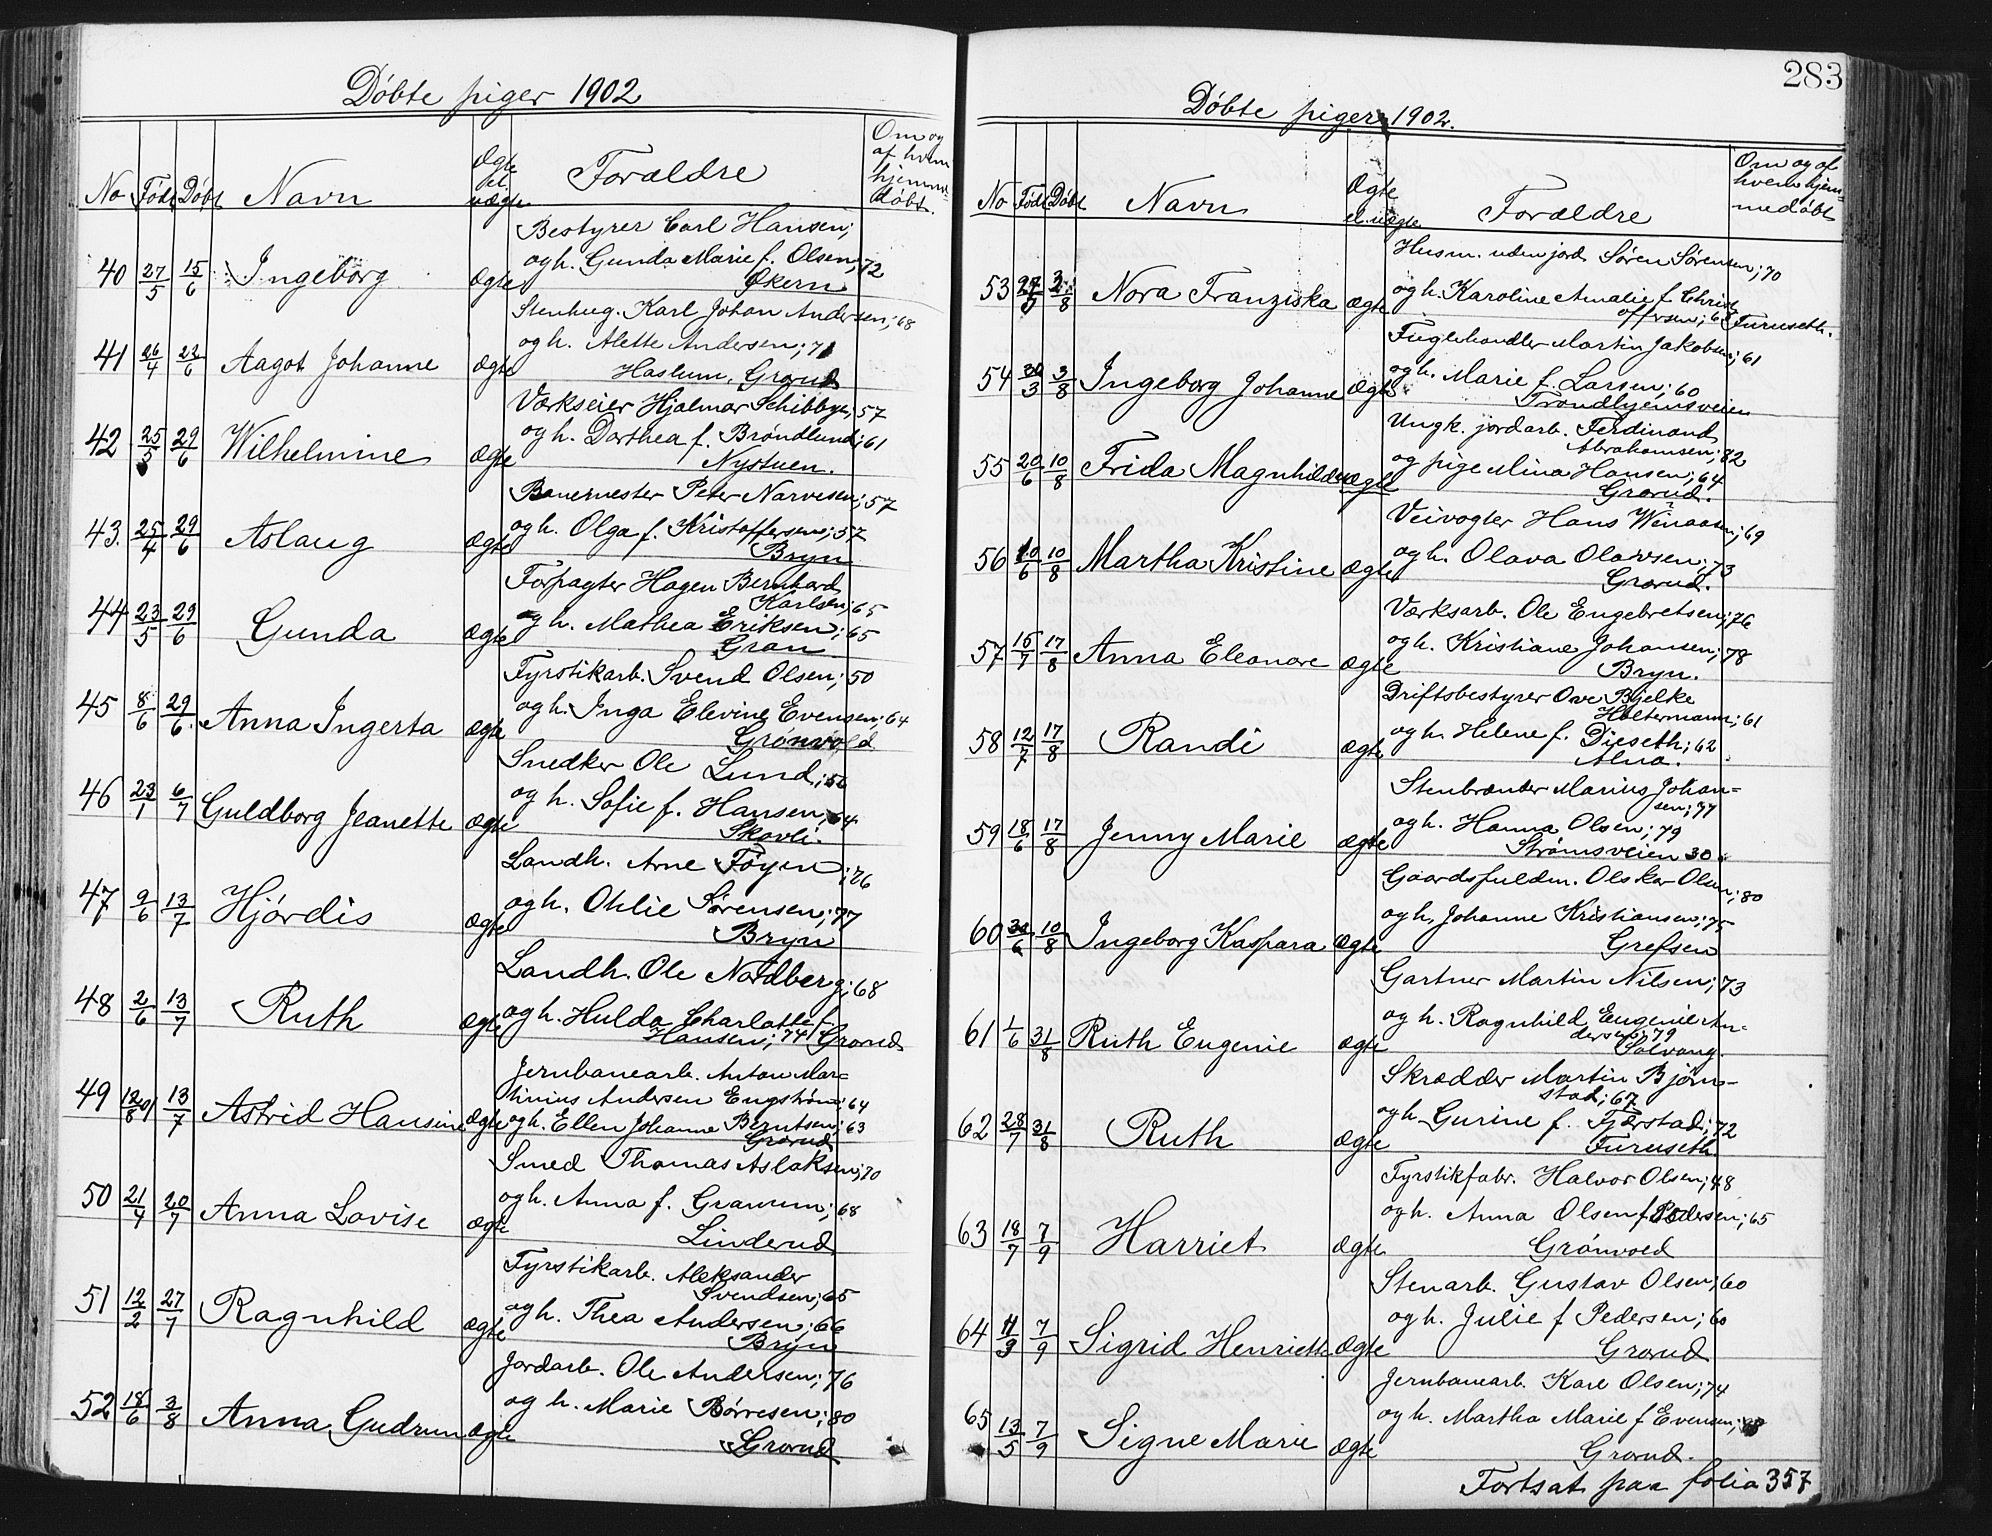 Døbte piger 1902
No Født Døbt Navn Ægte el. uægte Forældre Om og af hvem hjemme-døbt.
Bestyrer Carl Hansen;
40 27/5 15/6 Ingeborg Ægte og h. Gunda Marie f. Olsen; 72
Økern
Stenhug. Karl Johan Andersen; 68
41 26/4 22/6 Aagot Johanne Ægte og h. Alette Andersen; 71
Haslum, Grorud
Værkseier Hjalmar Schibbye; 57
42 25/5 29/6 Wilhelmine Ægte og h. Dorthea f. Brøndlund; 61
Nystuen.
Banemester Peter Narvesen; 57
43. 25/4 29/6 Aslaug Ægte og h. Olga f. Kristoffersen; 57
Bryn
Forpagter Hagen Bernhard
Karlsen; 65
44 23/5 29/6 Gunda Ægte og h. Mathea Eriksen; 65
Gran
Fyrstikarb. Svend Olsen; 50
45 8/6 29/6. Anna Ingerta Ægte og h. Inga Elevine Evensen; 64
Grønvold
Snedker Ole Lund; 56
46 23/1 6/7 Guldborg Jeanette Ægte og h. Sofie f. Hansen, 64
Skovli.
Landh. Arne Føyen; 76
47 9/6 13/7 Hjördis Ægte og h. Ohlie Sørensen; 77
Bryn
Landh. Ole Nordberg; 68
48 2/6 13/7 Ruth Ægte og h. Hulda Charlotte f.
Hansen; 74 Grorud
Jernbanearb. Anton Mar=
tinius Andersen Engstrøm; 64
49 12/8 01 13/7 Astrid Hansine Ægte og h. Ellen Johanne Berntsen; 63
Grorud
Smed Thomas Aslaksen; 70
50 21/4 20/7 Anna Lovise Ægte og h. Anna f. Gravum; 68
Linderud
Fyrstikarb. Aleksander
Svendsen; 65
51 12/2 27/7 Ragnhild Ægte og h. Thea Andersen; 66
Bryn
Jordarb. Ole Andersen; 76
52 18/6 3/8 Anna Gudrun Ægte og h. Marie Børresen; 80
Grorud
283
Døbte piger 1902.
No Født Døbt Navn Ægte el. uægte Forældre Om og af hvem hjem-medøbt
Husm. uden jord Søren Sørensen; 70
53 3/8 Nora Franziska Ægte og h. Karoline Amalie f. Christ
offersen; 67 Furuseth.
Fuglehandler Martin Jakobsen; 61
54 30/3 3/8 Ingeborg Johanne Ægte og h. Marie f. Larsen; 60
Trondhjemsveien
Ungk. jordarb. Ferdinand
Abrahamsen; 72
55 20/6 10/8 Frida Magnhilde uægte og pige Mina Hansen; 64
Grorud.
Veivogter Hans Winaasen; 69
56 10/6 10/8 Martha Kristine Ægte og h. Olava Olavsen; 73
Grorud.
Værksarb. Ole Engebretsen; 76
57 15/7 17/8 Anna Eleonore Ægte og h. Kristiane Johansen; 78
Bryn.
Driftsbestyrer Ove Bjelke
Holtermann; 61
58 12/7 17/8 Randi Ægte og h. Helene f. Dieseth; 62
Alna.
Stenbrænder Marius Johan=
sen; 77
59 18/6 17/8 Jenny Marie Ægte og h. Hanna Olsen; 79
Strømsveien 30.
Gaardsfuldm. Olskar Olsen; 80
60 30/6 10/8 Ingeborg Kaspara Ægte og h. Johanne Kristiansen; 75
Grefsen
Gartner Martin Nilsen; 73
61 1/6 31/8 Ruth Eugenie Ægte og h. Ragnhild Eugenie An=
dersen; 79
Solvang.
Skrædder Martin Bjørn-
stad; 67
62 28/7 31/8 Ruth Ægte og h. Gurine f. Fjærstad; 72
Furuseth
Fyrstikfabr. Halvor Olsen; 48
63 18/7 7/9 Harriet Ægte og h. Anna Olsen f. Pedersen; 65
Grønvold
Stenarb. Gustav Olsen; 60
64 11/3 7/9 Sigrid Henriette Ægte og h. Julie f Pedersen; 60
Grorud
Jernbanearb. Karl Olsen; 74
65 13/5 7/9 Signe Marie Ægte og h. Martha Marie f Evensen;
Grorud.
Fortsat paa folio 357